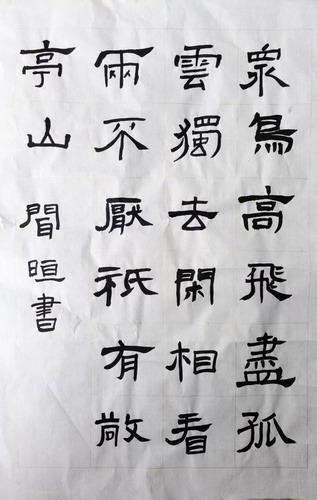 眾鳥高飛盡孤
雲獨去閑相看
兩不厭祇有敞
亭山
間晅書